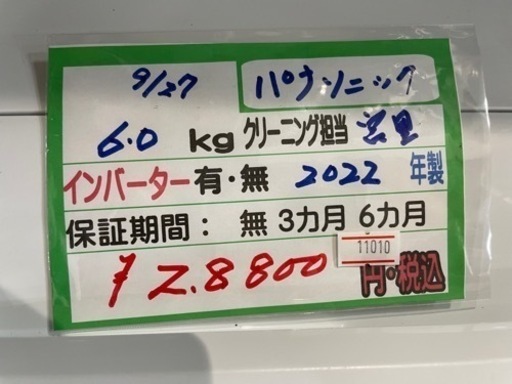 9/27 パナソニック
6.0 kg クリーニング担当 宮里
インバーター 有・無 2022 年製
保証期間： 無 3カ月 6カ月
11010
¥28800 円・税込